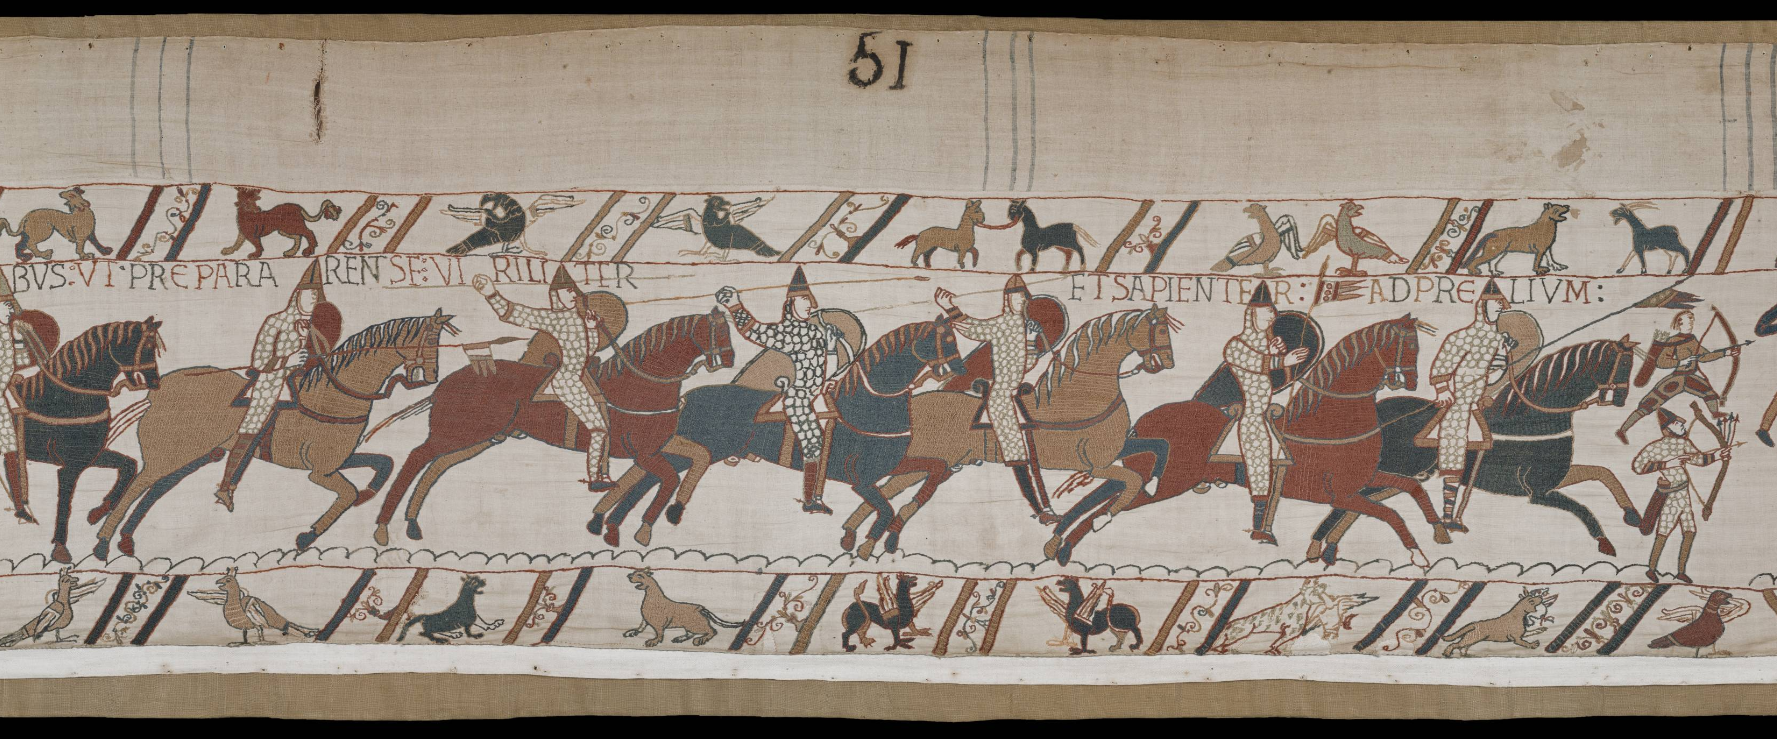 51
BVS:VT·PREPARA RENSE:VI RILI TER ETSAPIENTER: ADPRELIVM: